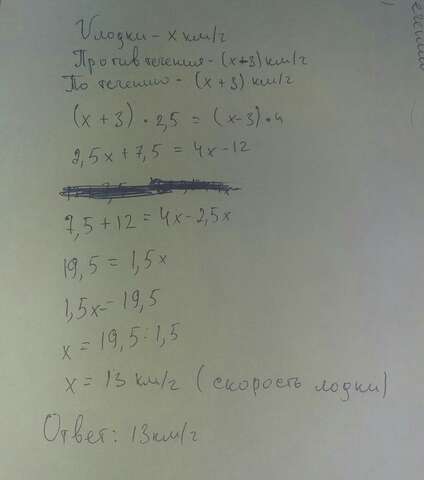 Vлодки - x км/г
Против течения - (x+3) км/г
По течению - (x+3) км/г
(x+3)·2,5 = (x-3)·4
2,5x+7,5 = 4x-12
7,5+12 = 4x-2,5x
19,5 = 1,5x
1,5x = 19,5
x = 19,5:1,5
x = 13 км/г (скорость лодки)
Ответ: 13км/г